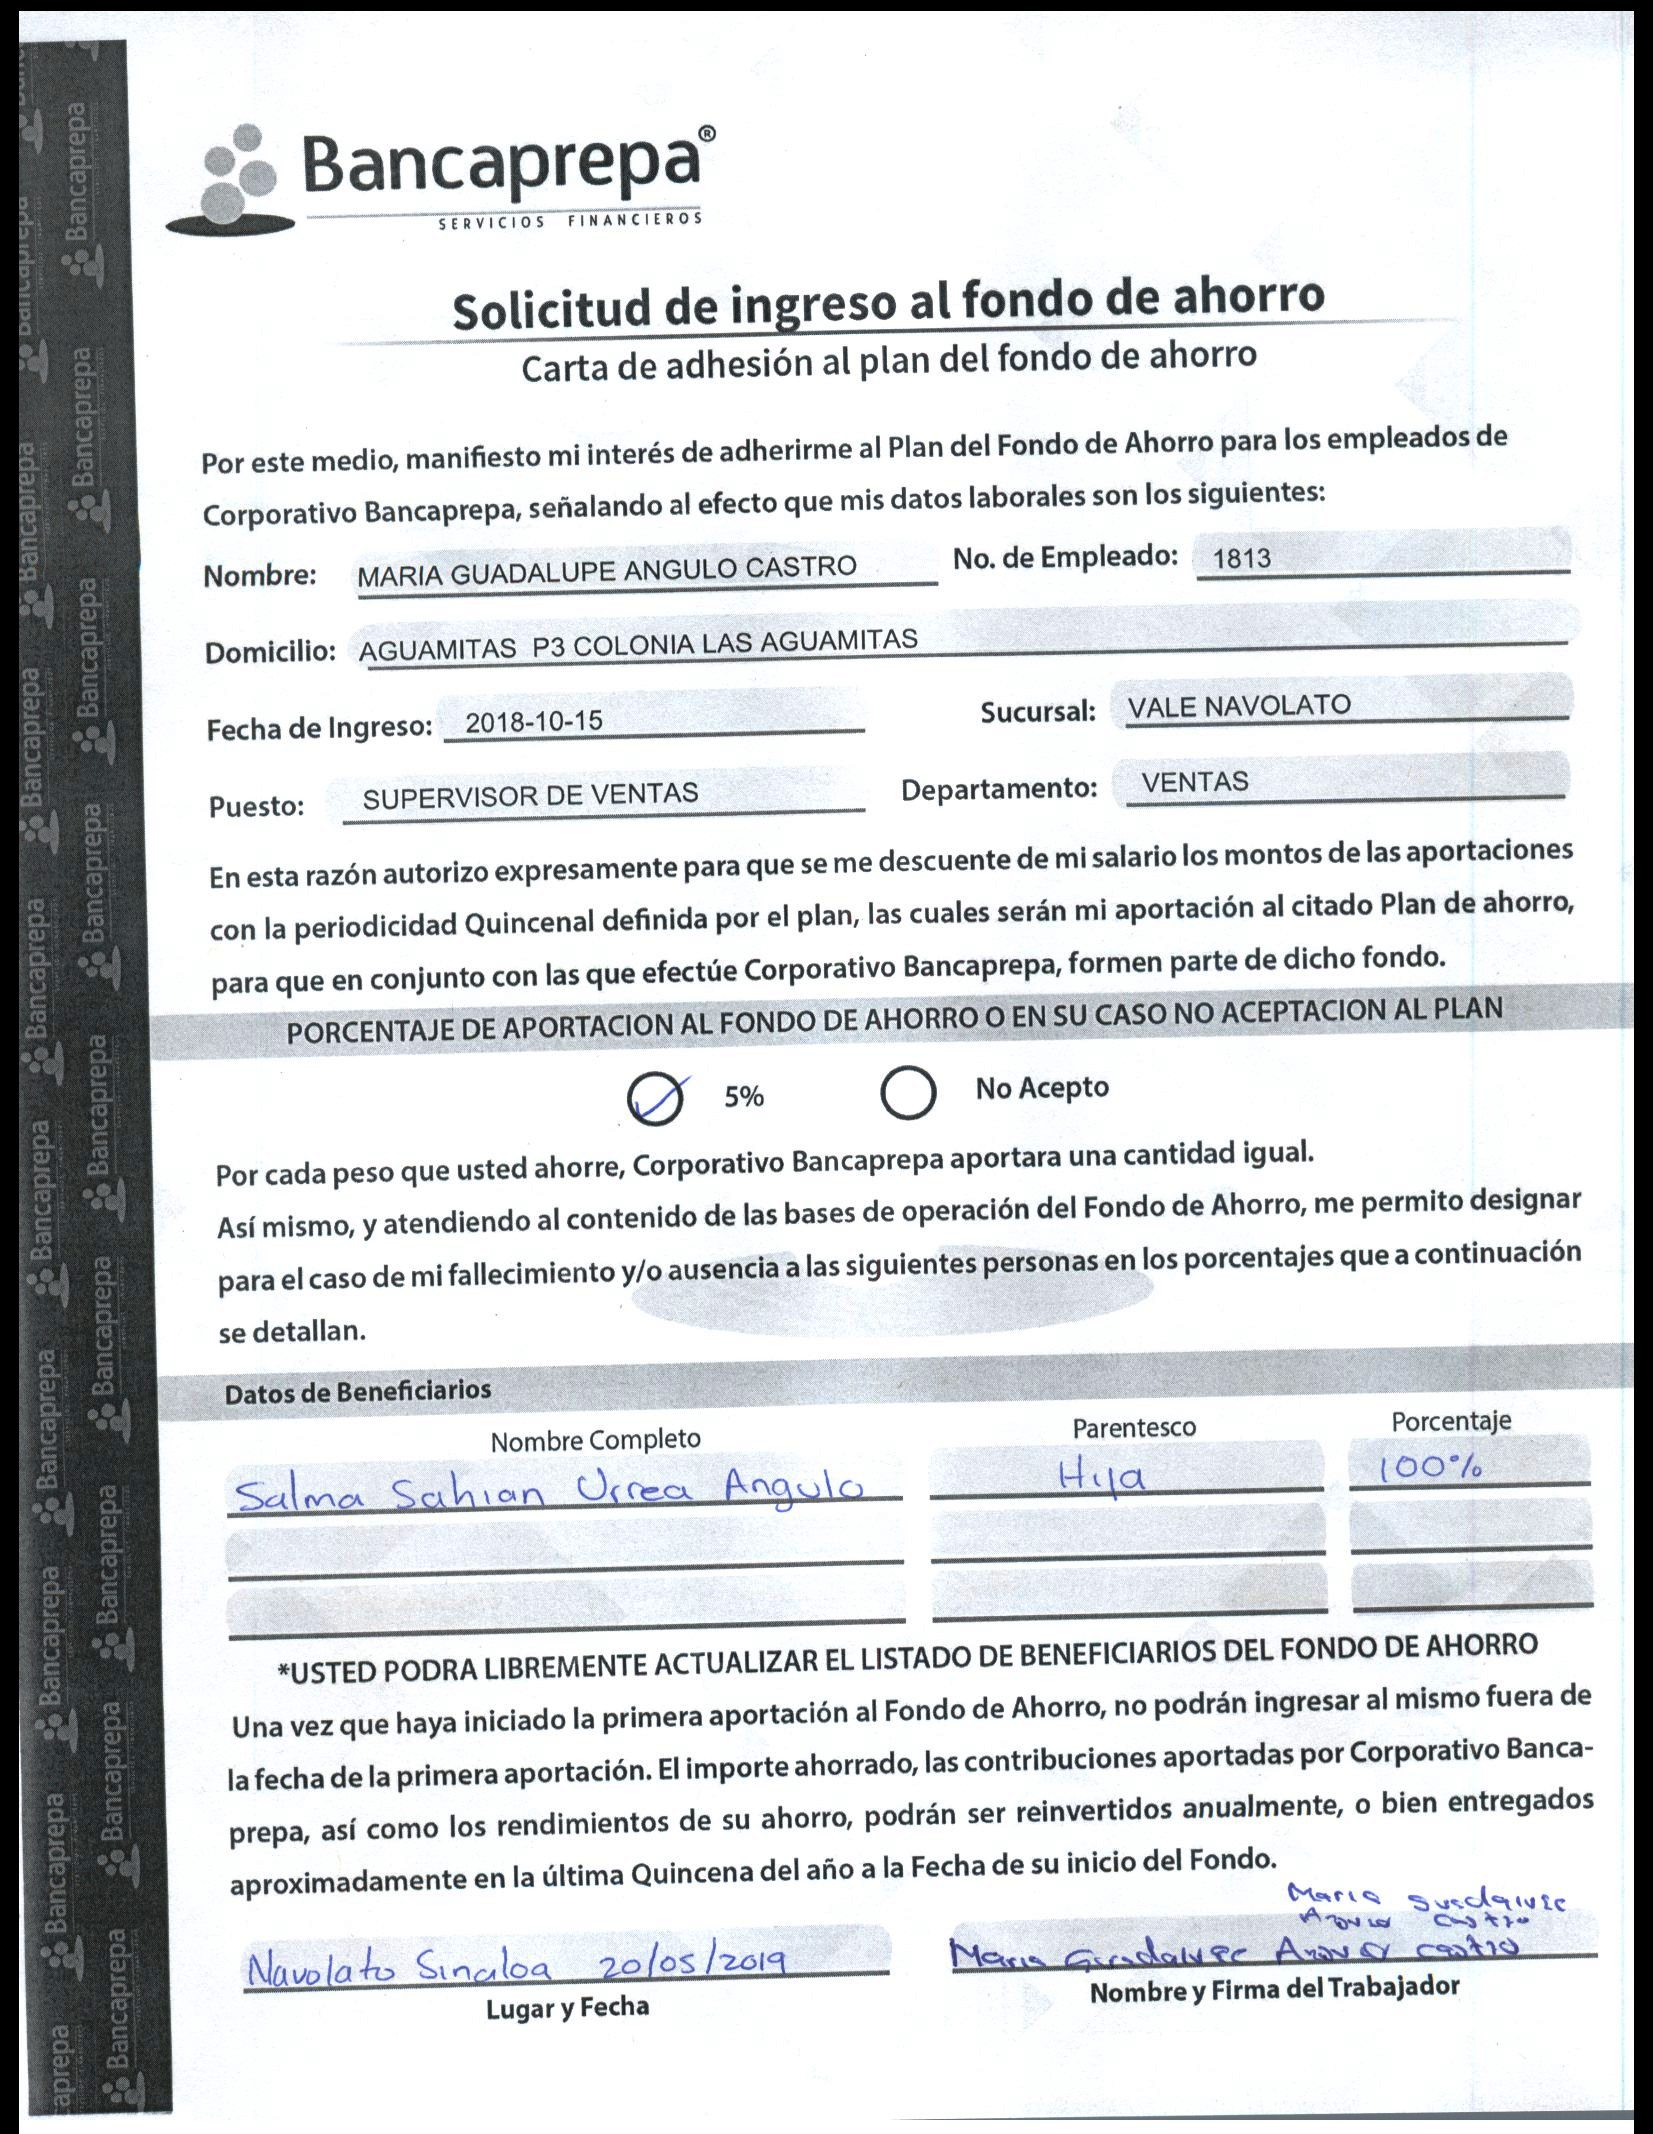 Bancaprepa®
SERVICIOS FINANCIEROS
Solicitud de ingreso al fondo de ahorro
Carta de adhesión al plan del fondo de ahorro
Por este medio, manifiesto mi interés de adherirme al Plan del Fondo de Ahorro para los empleados de
Corporativo Bancaprepa, señalando al efecto que mis datos laborales son los siguientes:
Nombre: MARIA GUADALUPE ANGULO CASTRO No. de Empleado: 1813
Domicilio: AGUAMITAS P3 COLONIA LAS AGUAMITAS
Fecha de Ingreso: 2018-10-15 Sucursal: VALE NAVOLATO
Puesto: SUPERVISOR DE VENTAS Departamento: VENTAS
En esta razón autorizo expresamente para que se me descuente de mi salario los montos de las aportaciones
con la periodicidad Quincenal definida por el plan, las cuales serán mi aportación al citado Plan de ahorro,
para que en conjunto con las que efectúe Corporativo Bancaprepa, formen parte de dicho fondo.
PORCENTAJE DE APORTACION AL FONDO DE AHORRO O EN SU CASO NO ACEPTACION AL PLAN
5% No Acepto
Por cada peso que usted ahorre, Corporativo Bancaprepa aportara una cantidad igual.
Así mismo, y atendiendo al contenido de las bases de operación del Fondo de Ahorro, me permito designar
para el caso de mi fallecimiento y/o ausencia a las siguientes personas en los porcentajes que a continuación
se detallan.
Datos de Beneficiarios
Nombre Completo Parentesco Porcentaje
Salma Sahian Urrea Angulo Hija 100%
*USTED PODRA LIBREMENTE ACTUALIZAR EL LISTADO DE BENEFICIARIOS DEL FONDO DE AHORRO
Una vez que haya iniciado la primera aportación al Fondo de Ahorro, no podrán ingresar al mismo fuera de
la fecha de la primera aportación. El importe ahorrado, las contribuciones aportadas por Corporativo Banca-
prepa, así como los rendimientos de su ahorro, podrán ser reinvertidos anualmente, o bien entregados
aproximadamente en la última Quincena del año a la Fecha de su inicio del Fondo.
Maria Guadalupe
Angulo Castro
Navolato Sinaloa 20/05/2019 Maria Guadalupe Angulo Castro
Lugar y Fecha Nombre y Firma del Trabajador